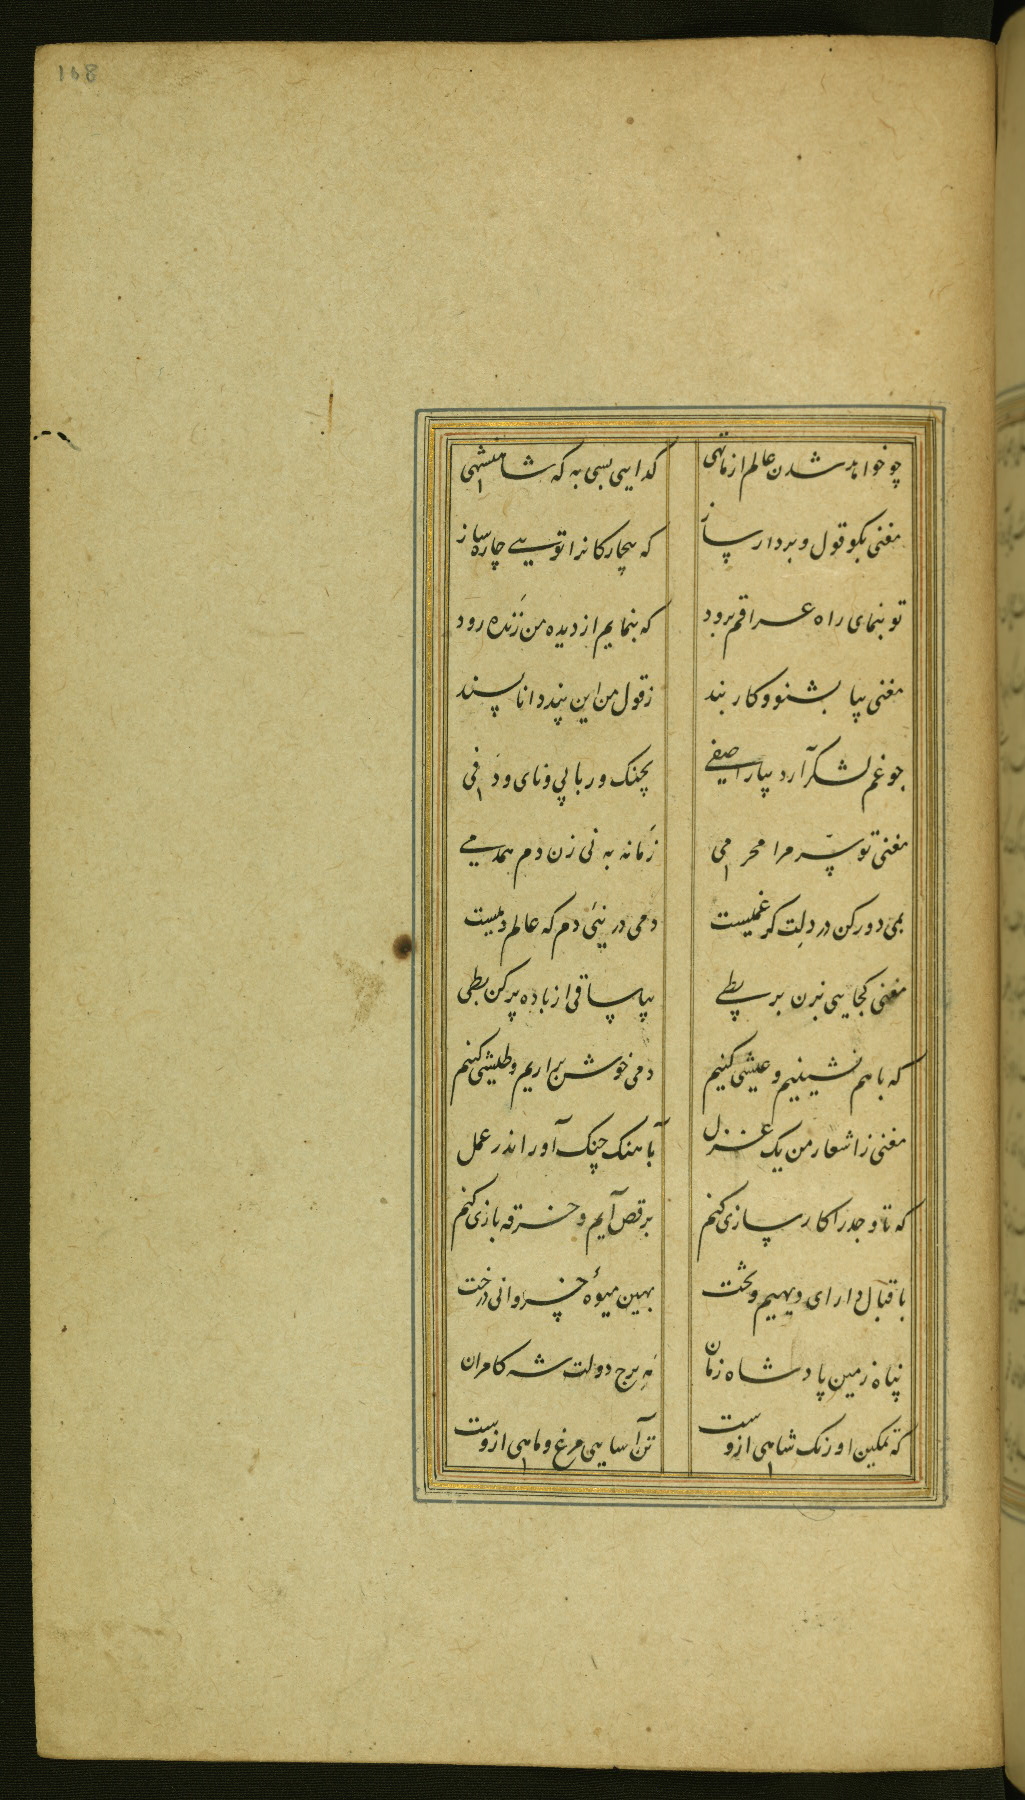 168
چو خواهد شدن عالم از ما تهی کدایی بسی به که شاهنشهی
مغنی بکو قول و بردار ساز که بیچارکانرا تویی چاره ساز
تو بنمای راه عراقم برود که بنمایم از دیده من زنده رود
مغنی بیا بشنو و کار بند ز قول من این پند دانا پسند
چو غم لشکر آرد بیارا صفی بچنک و ربابی و نای و دفی
مغنی تو سر مرا محرمی زمانه به نی زن دم همدمی
بمی دور کن در دلت کر غمیست دمی در نیی دم که عالم دمیست
مغنی کجایی بزن بربطی بیا ساقی از باده پر کن بطی
که با هم نشینیم و عیشی کنیم دمی خوش براریم و طیشی کنیم
مغنی ز اشعار من یک غزل بآهنک چنک آور اندر عمل
که تا وجد را کارسازی کنم برقص آیم و خرقه بازی کنم
باقبال دارای دیهیم و تخت بهین میوهٔ خسروانی درخت
پناه زمین پادشاه زمان مه برج دولت شه کامران
که تمکین اورنک شاهی ازوست تن آسایی مرغ و ماهی ازوست